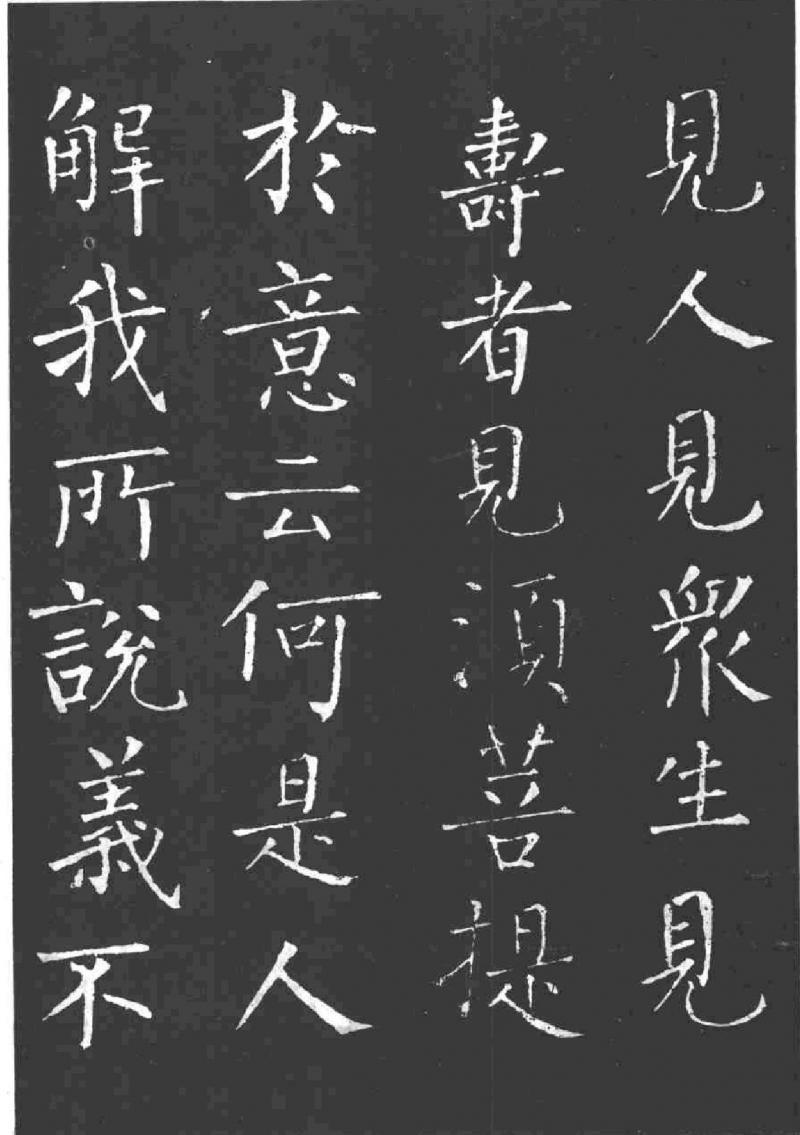 見人見衆生見
壽者見須菩提
於意云何是人
解我所說義不